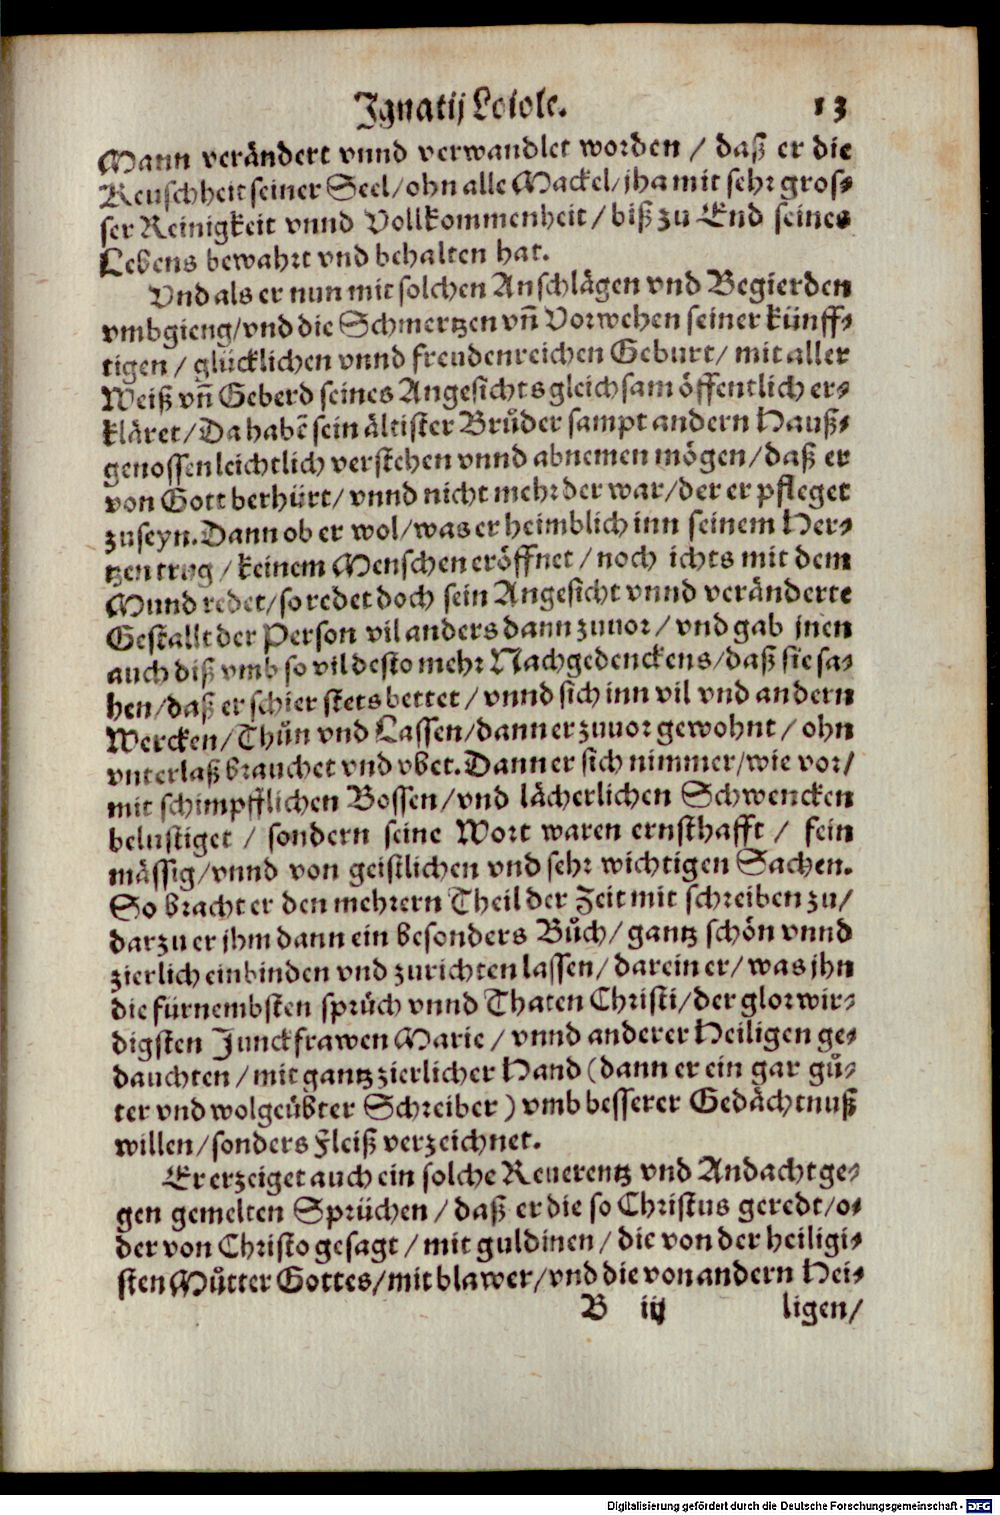 Ignatij Loiole. 13
Mann verändert vnnd verwandlet worden / daß er die
Keuschheit seiner Seel / ohn alle Mackel / jha mit sehr gros-
ser Reinigkeit vnnd Vollkommenheit / biß zu End seines
Lebens bewahrt vnd behalten hat.
Vnd als er nun mit solchen Anschlägen vnd Begierden
vmbgieng / vnd die Schmertzen vñ Vorwehen seiner künff-
tigen / glücklichen vnnd freudenreichen Geburt / mit aller
Weiß vñ Geberd seines Angesichts gleichsam öffentlich er-
kläret / Da habẽ sein ältister Brůder sampt andern Hauß-
genossen leichtlich verstehen vnnd abnemen mögen / daß er
von Gott berhürt / vnnd nicht mehr der war / der er pfleget
zuseyn. Dann ob er wol / was er heimblich inn seinem Her-
tzen trug / keinem Menschen eröffnet / noch ichts mit dem
Mund redet / so redet doch sein Angesicht vnnd veränderte
Gestallt der Person vil anders dann zuuor / vnd gab jnen
auch diß vmb so vil desto mehr Nachgedenckens / daß sie sa-
hen / daß er schier stets bettet / vnnd sich inn vil vnd andern
Wercken / Thůn vnd Lassen / dann er zuuor gewohnt / ohn
vnterlaß brauchet vnd vbet. Dann er sich nimmer / wie vor /
mit schimpfflichen Bossen / vnd lächerlichen Schwencken
belustiget / sondern seine Wort waren ernsthafft / fein
mässig / vnnd von geistlichen vnd sehr wichtigen Sachen.
So bracht er den mehrern Theil der Zeit mit schreiben zu /
darzu er jhm dann ein besonders Bůch / gantz schön vnnd
zierlich einbinden vnd zurichten lassen / darein er / was jhn
die fürnembsten sprüch vnnd Thaten Christi / der glorwir-
digsten Junckfrawen Marie / vnnd anderer Heiligen ge-
dauchten / mit gantz zierlicher Hand (dann er ein gar gů-
ter vnd wolgeübter Schreiber) vmb besserer Gedächtnuß
willen / sonders Fleiß verzeichnet.
Er erzeiget auch ein solche Reuerentz vnd Andacht ge-
gen gemelten Sprüchen / daß er die so Christus geredt / o-
der von Christo gesagt / mit guldinen / die von der heiligi-
sten Můtter Gottes / mit blawer / vnd die von andern Hei-
B iij ligen /
Digitalisierung gefördert durch die Deutsche Forschungsgemeinschaft - DFG